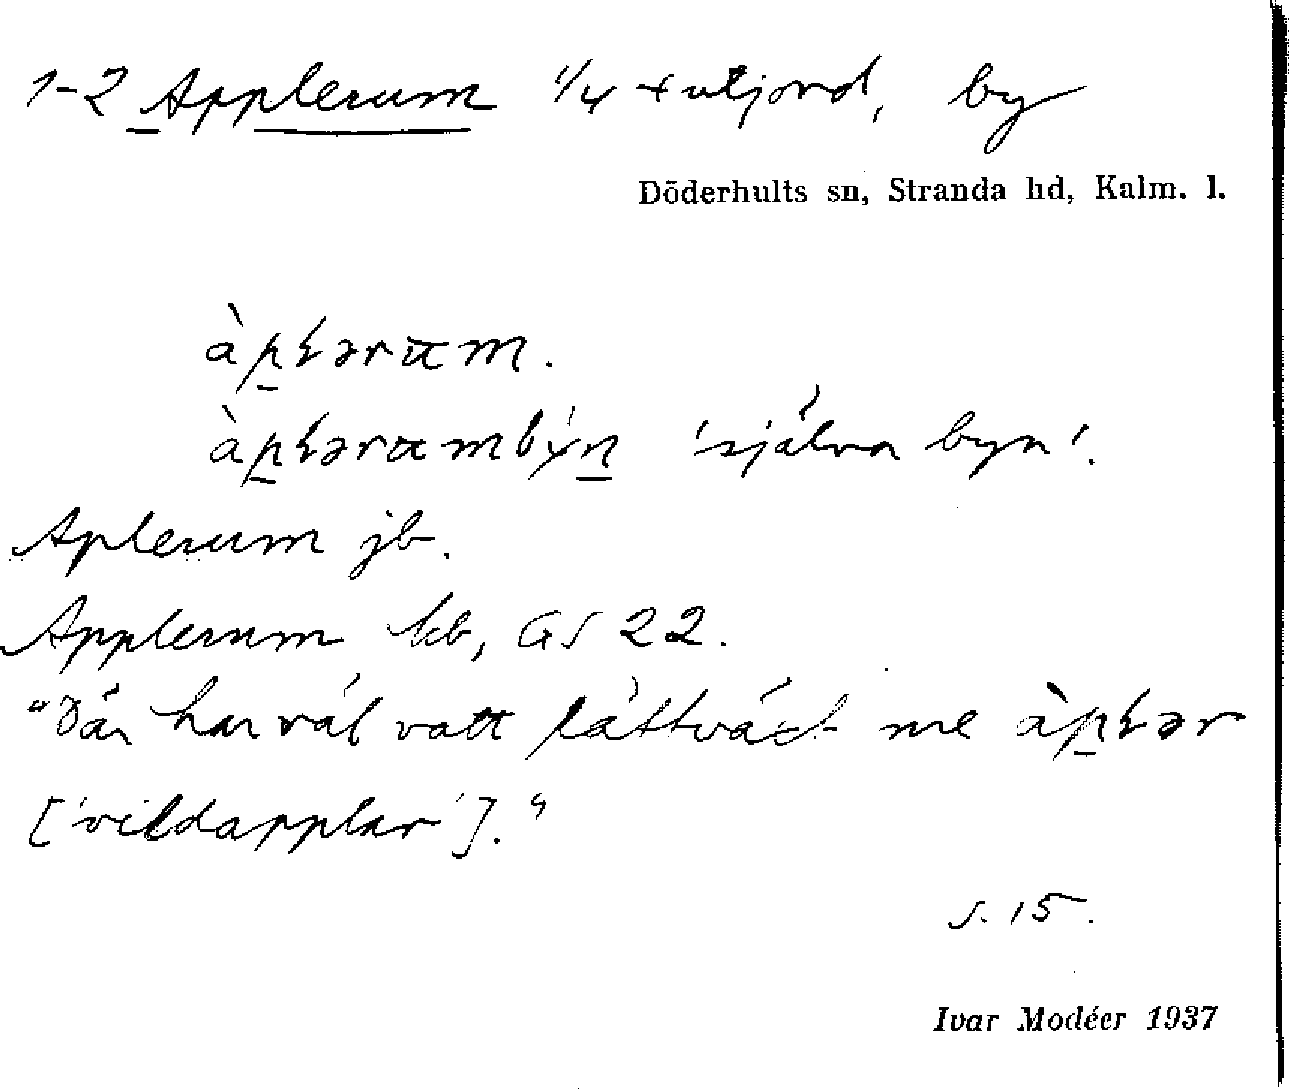 1-2 Applerum 1/4 + utjord, by
Döderhults sn, Stranda hd, Kalm. l.
àp̱ɫərɷm.
àp̱ɫərɷmbýṉ 'själva byn'.
Aplerum jb.
Applerum kb, GS 22.
"Där har väl vatt lättväxt me àp̱ɫər
['vildapplar']."
s. 15.
Ivar Modéer 1937